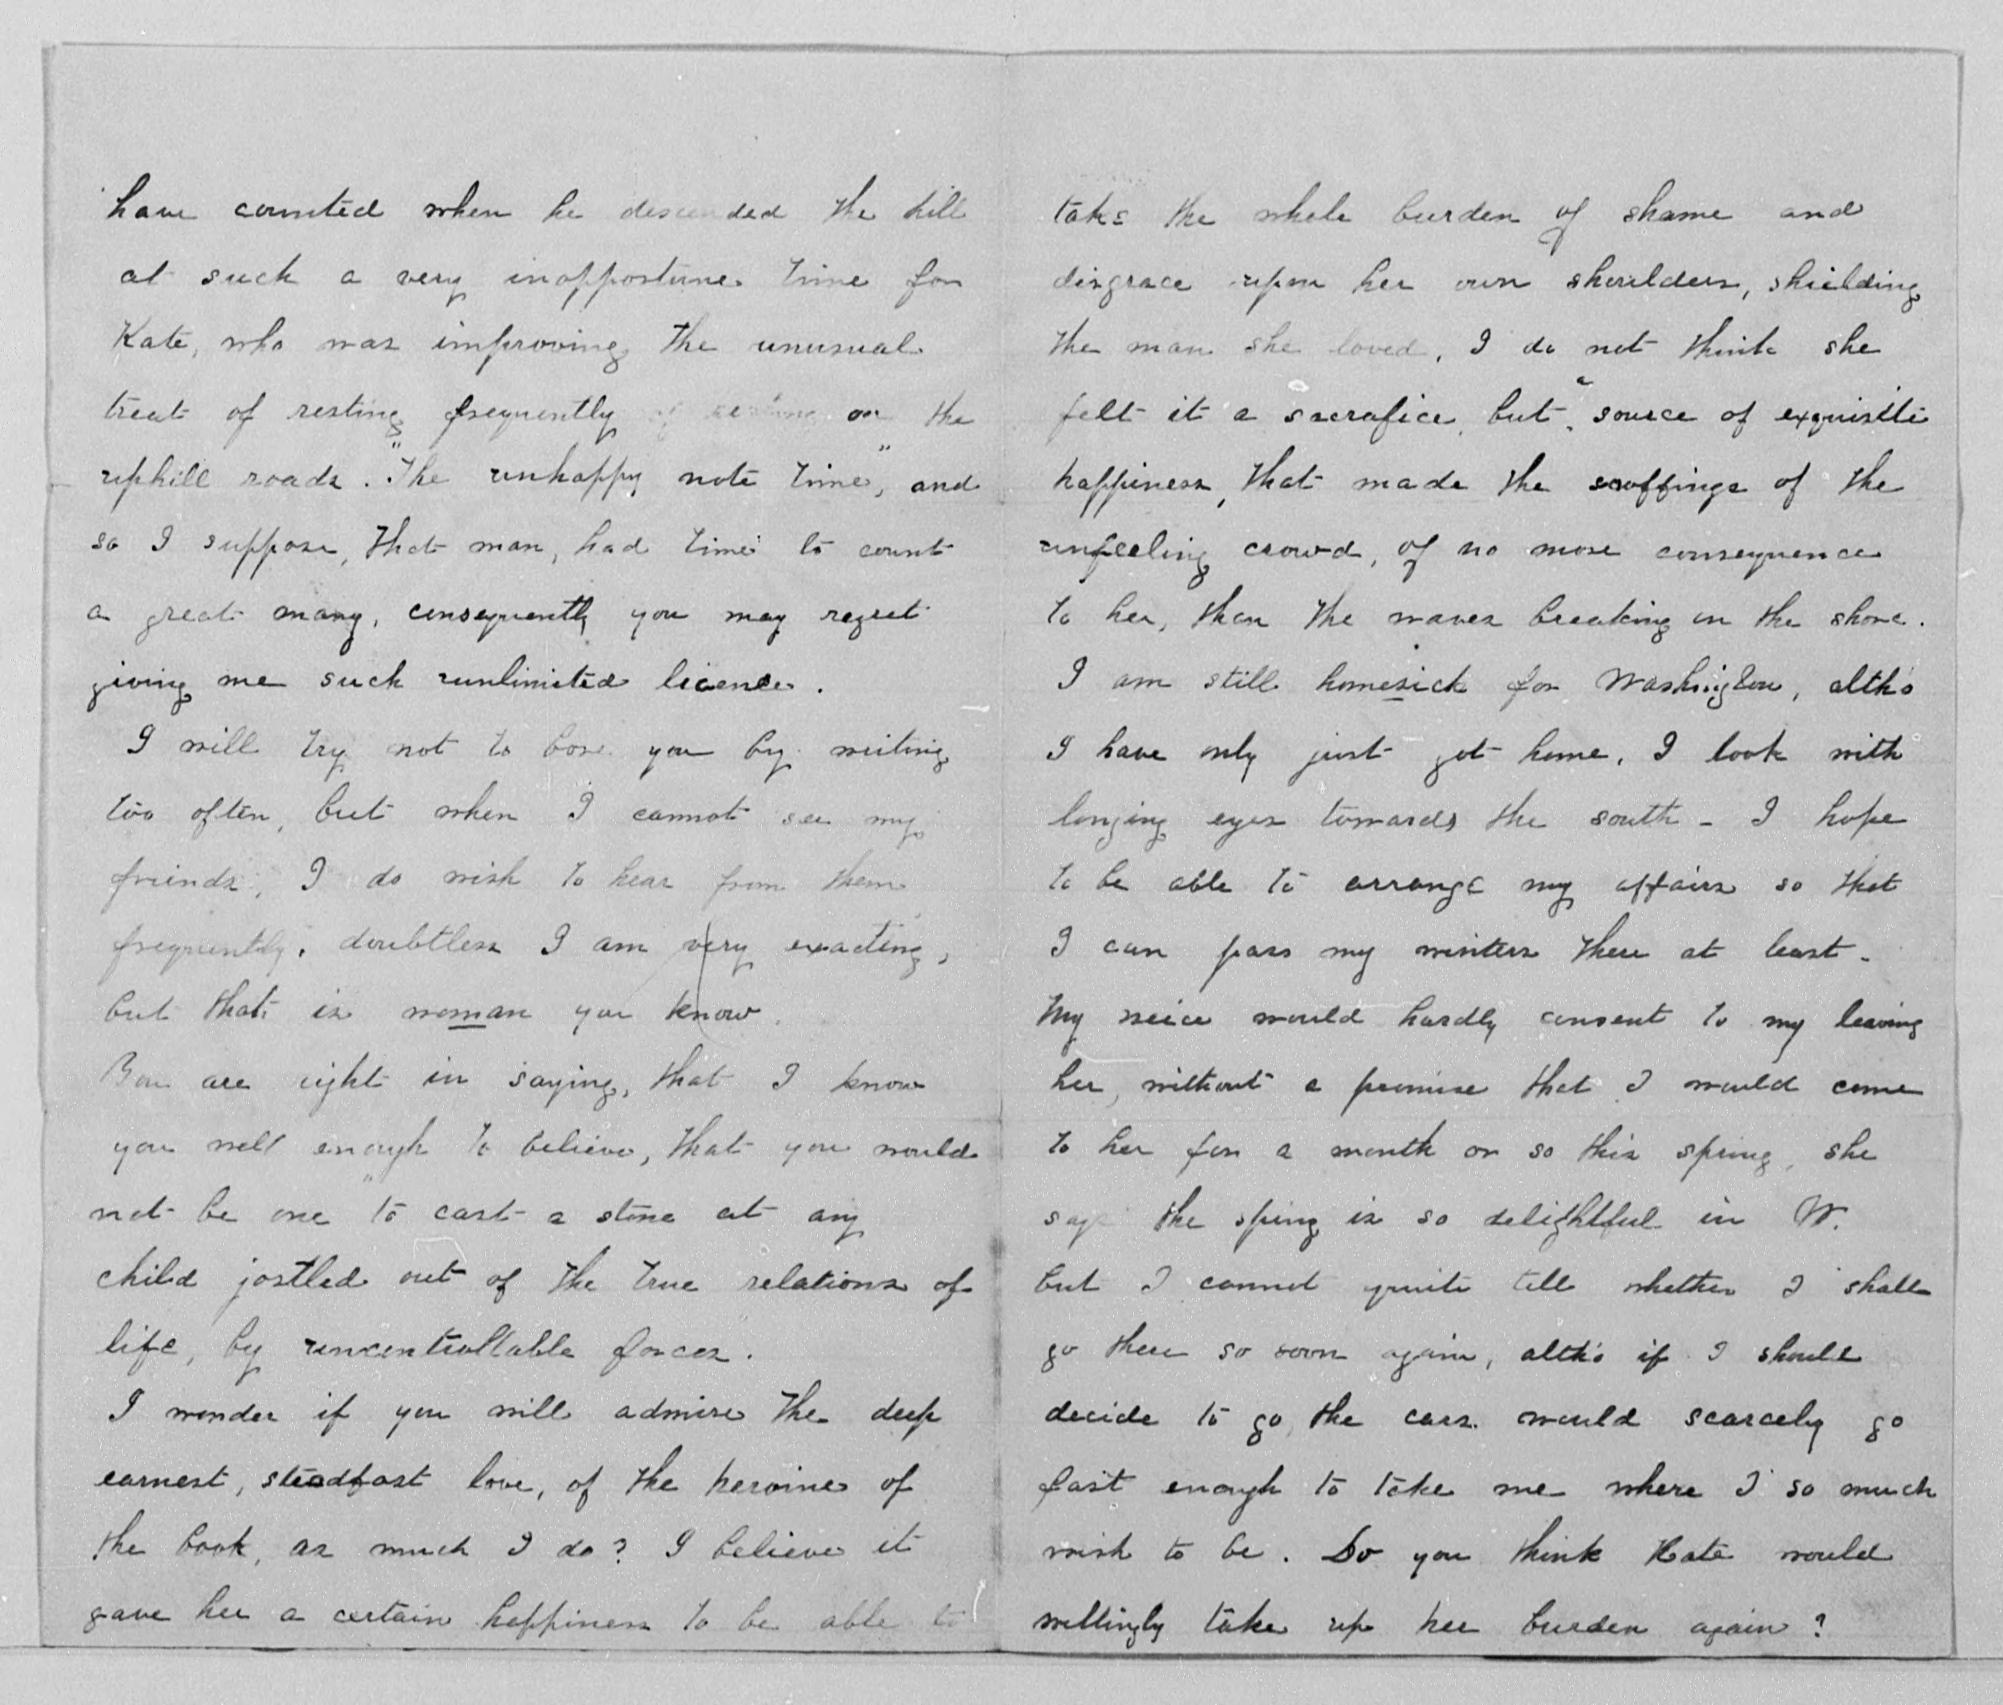 have counted when he descended the hill
at such a very inopportune time for
Kate, who was improving the unusual
treat of resting frequently on the
uphill roads. "The unhappy note time", and
so I suppose, that man, had time to count
a great many, consequently you may regret
giving me such unlimited licence.
I will try not to bore you by writing
too often, but when I cannot see my
friends, I do wish to hear from them
frequently, doubtless I am very exacting,
but that is woman you know.
You are right in saying, that I know
you well enough to believe, that you would
not be one "to cast a stone at any
child jostled out of the true relations of
life, by uncontrollable forces.
I wonder if you will admire the deep
earnest, steadfast love, of the heroine of
the book, as much I do? I believe it
gave her a certain happiness to be able to
take the whole burden of shame and
disgrace upon her own shoulders, shielding
the man she loved, I do not think she
felt it a sacrafice, but a source of exquisite
happiness, that made the scoffings of the
unfeeling crowd, of no more consequence
to her, than the waves breaking on the shore.
I am still homesick for Washington, altho
I have only just got home, I look with
longing eyes towards the south - I hope
to be able to arrange my affairs so that
I can pass my winters there at least -
My neice would hardly consent to my leaving
her, without a promise that I would come
to her for a month or so this spring, she
says the sping is so delightful in W.
but I cannot quite tell whether I shall
go there so soon again, altho if I should
decide to go, the cars would scarcely go
fast enough to take me where I so much
wish to be. Do you think Kate would
willingly take up her burden again?